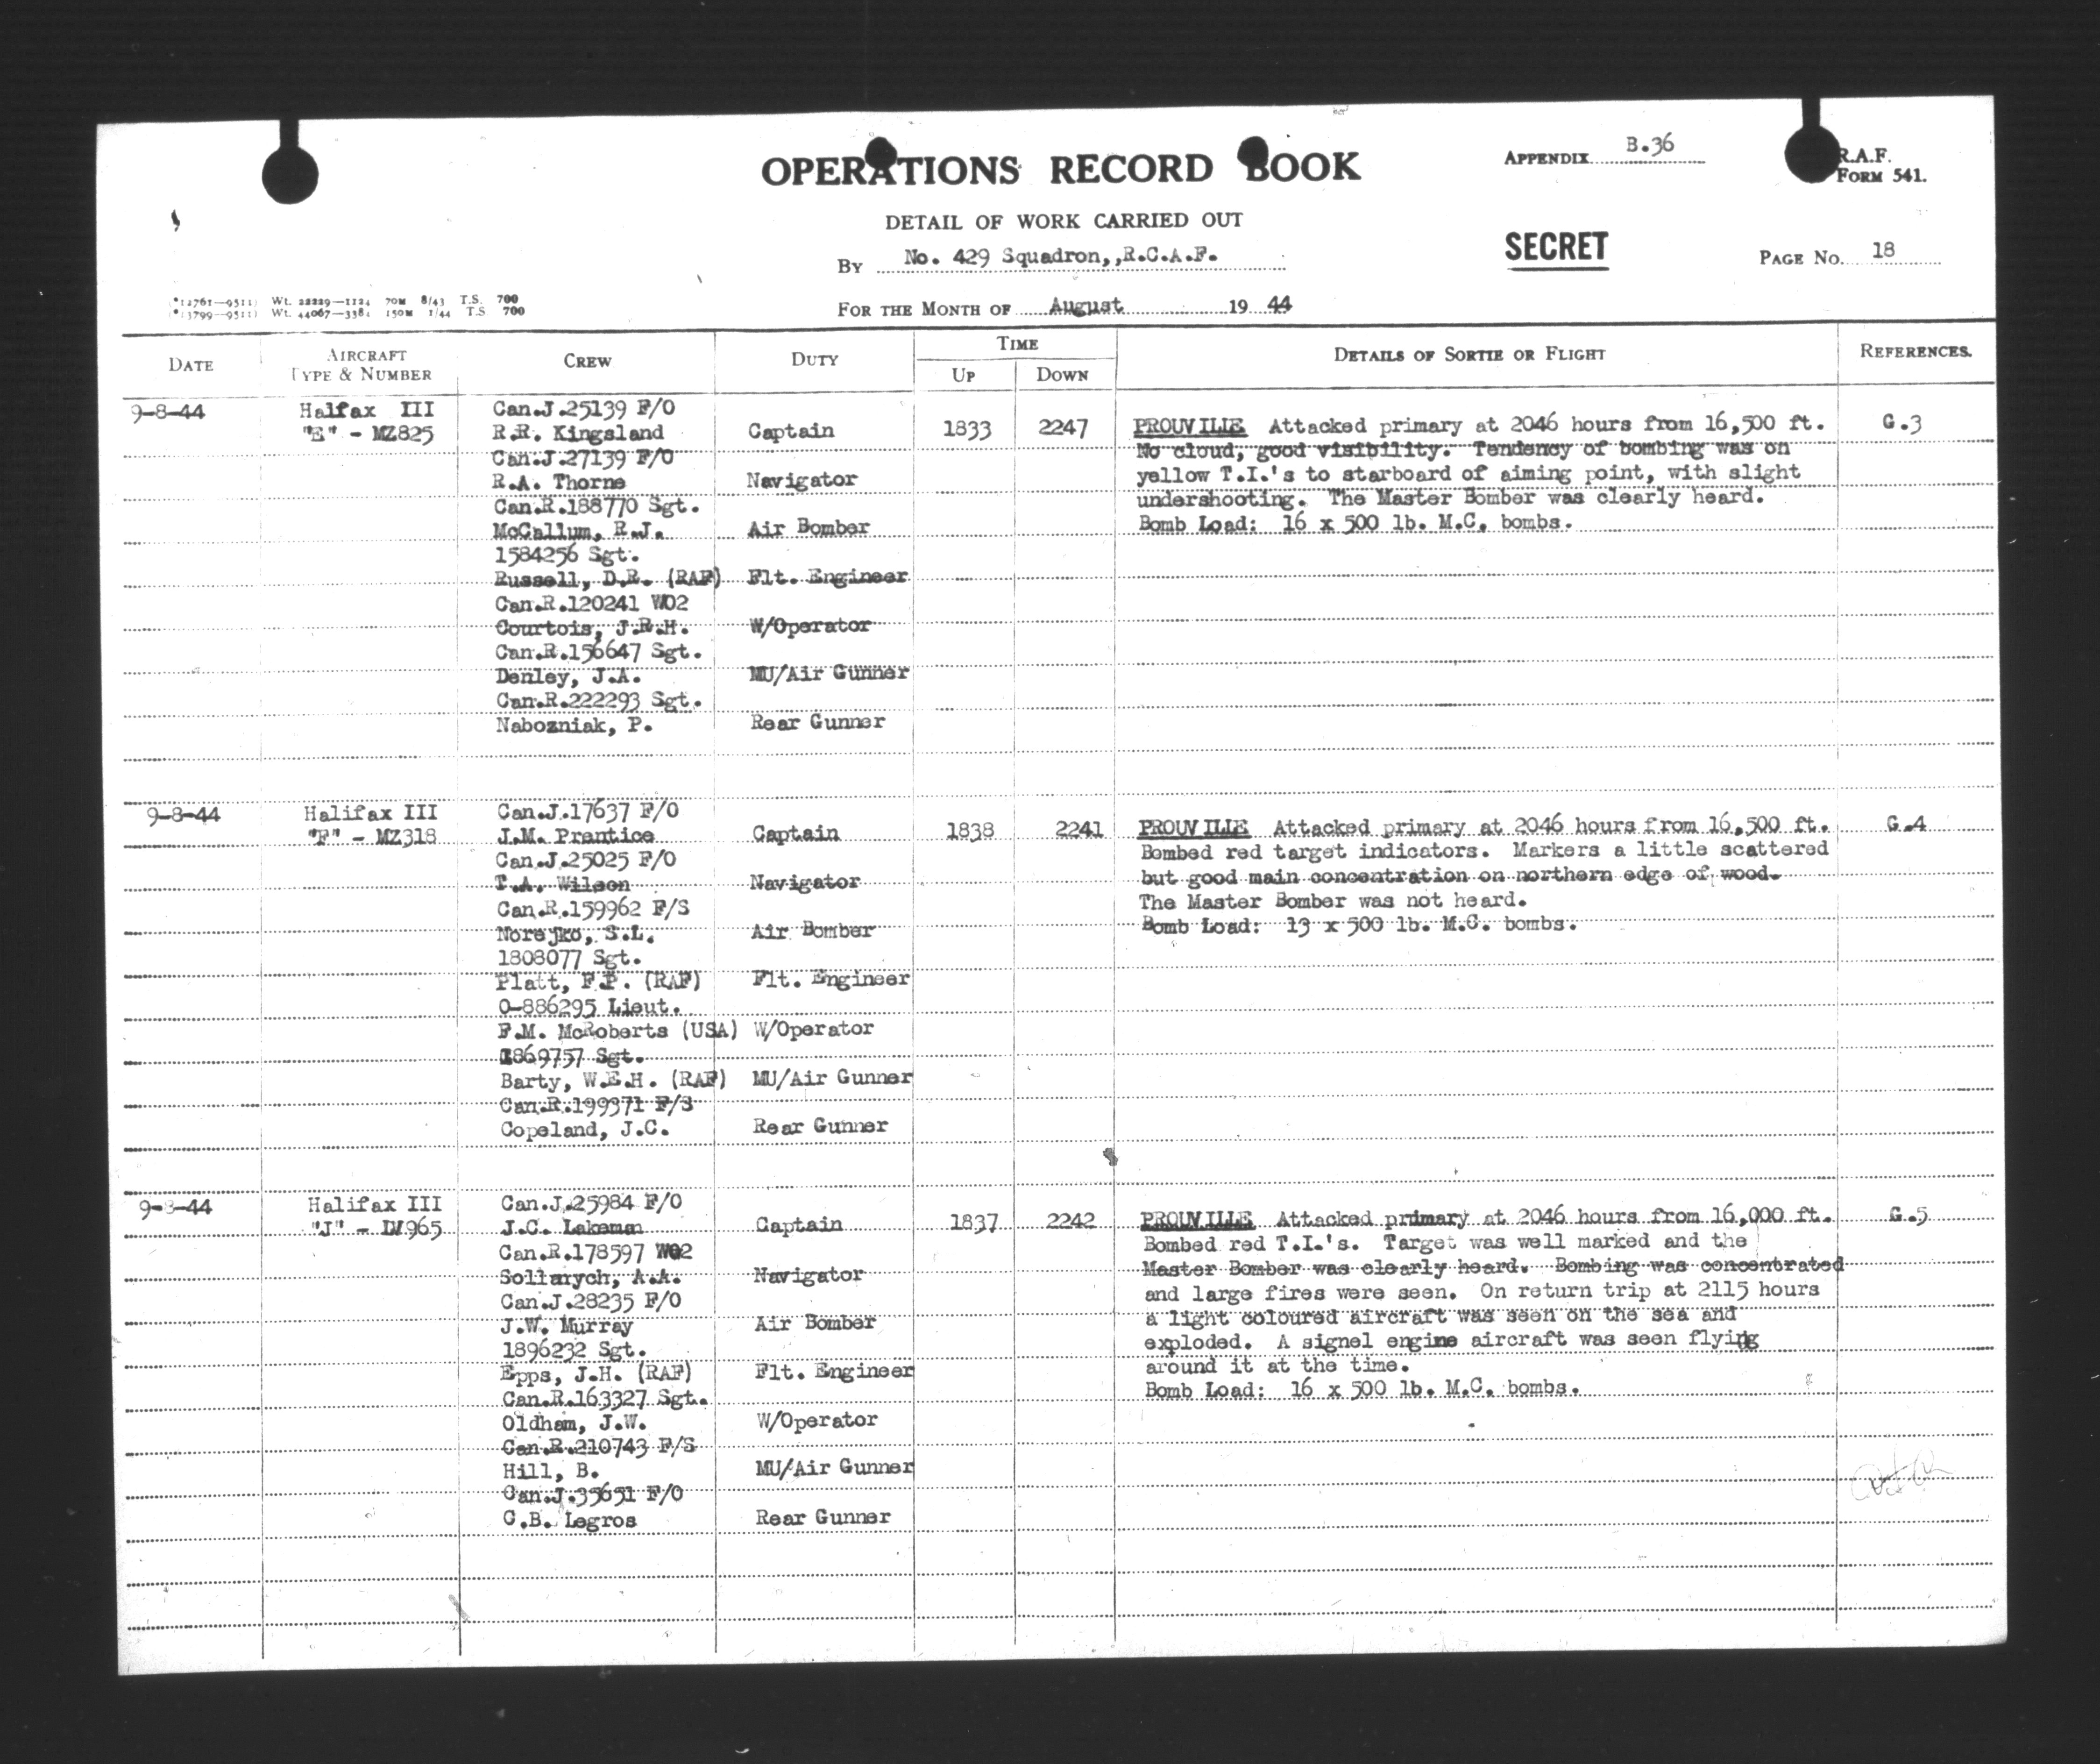 OPERATIONS RECORD BOOK
APPENDIX B.36
R.A.F.
FORM 541.
DETAIL OF WORK CARRIED OUT
By No. 429 Squadron,,R.C.A.F.
SECRET
PAGE No. 18
FOR THE MONTH OF August 19 44
(*12761—9511) Wt. 22229—1124 70M 8/43 T.S. 700
(*13799—9511) Wt. 44067—3384 150M 1/44 T.S 700
DATE
AIRCRAFT
TYPE & NUMBER
CREW
DUTY
TIME
UP
DOWN
DETAILS OF SORTIE OR FLIGHT
REFERENCES.
9-8-44 Halfax III Can.J.25139 F/O
"E" - MZ825 R.R. Kingsland Captain 1833 2247 PROUVILLE Attacked primary at 2046 hours from 16,500 ft. G.3
Can.J.27139 F/O No cloud, good visibility. Tendency of bombing was on
R.A. Thorne Navigator yellow T.I.'s to starboard of aiming point, with slight
Can.R.188770 Sgt. undershooting. The Master Bomber was clearly heard.
McCallum, R.J. Air Bomber Bomb Load: 16 x 500 lb. M.C. bombs.
1584256 Sgt.
Russell, D.R. (RAF) Flt. Engineer
Can.R.120241 WO2
Courtois, J.R.H. W/Operator
Can.R.156647 Sgt.
Denley, J.A. MU/Air Gunner
Can.R.222293 Sgt.
Nabozniak, P. Rear Gunner
9-8-44 Halifax III Can.J.17637 F/O
"F" - MZ318 J.M. Prentice Captain 1838 2241 PROUVILLE Attacked primary at 2046 hours from 16,500 ft. G.4
Can.J.25025 F/O Bombed red target indicators. Markers a little scattered
T.A. Wilson Navigator but good main concentration on northern edge of wood.
Can.R.159962 F/S The Master Bomber was not heard.
Norejko, S.L. Air Bomber Bomb Load: 13 x 500 lb. M.C. bombs.
1808077 Sgt.
Platt, F.P. (RAF) Flt. Engineer
O-886295 Lieut.
F.M. McRoberts (USA) W/Operator
1869757 Sgt.
Barty, W.E.H. (RAF) MU/Air Gunner
Can.R.199371 F/S
Copeland, J.C. Rear Gunner
9-8-44 Halifax III Can.J.25984 F/O
"J" - LV965 J.C. Lakeman Captain 1837 2242 PROUVILLE Attacked primary at 2046 hours from 16,000 ft. G.5
Can.R.178597 WO2 Bombed red T.I.'s. Target was well marked and the
Sollarych, A.A. Navigator Master Bomber was clearly heard. Bombing was concentrated
Can.J.28235 F/O and large fires were seen. On return trip at 2115 hours
J.W. Murray Air Bomber a light coloured aircraft was seen on the sea and
1896232 Sgt. exploded. A signel engine aircraft was seen flying
Epps, J.H. (RAF) Flt. Engineer around it at the time.
Can.R.163327 Sgt. Bomb Load: 16 x 500 lb. M.C. bombs.
Oldham, J.W. W/Operator
Can.R.210743 F/S
Hill, B. MU/Air Gunner
Can.J.35651 F/O
C.B. Legros Rear Gunner